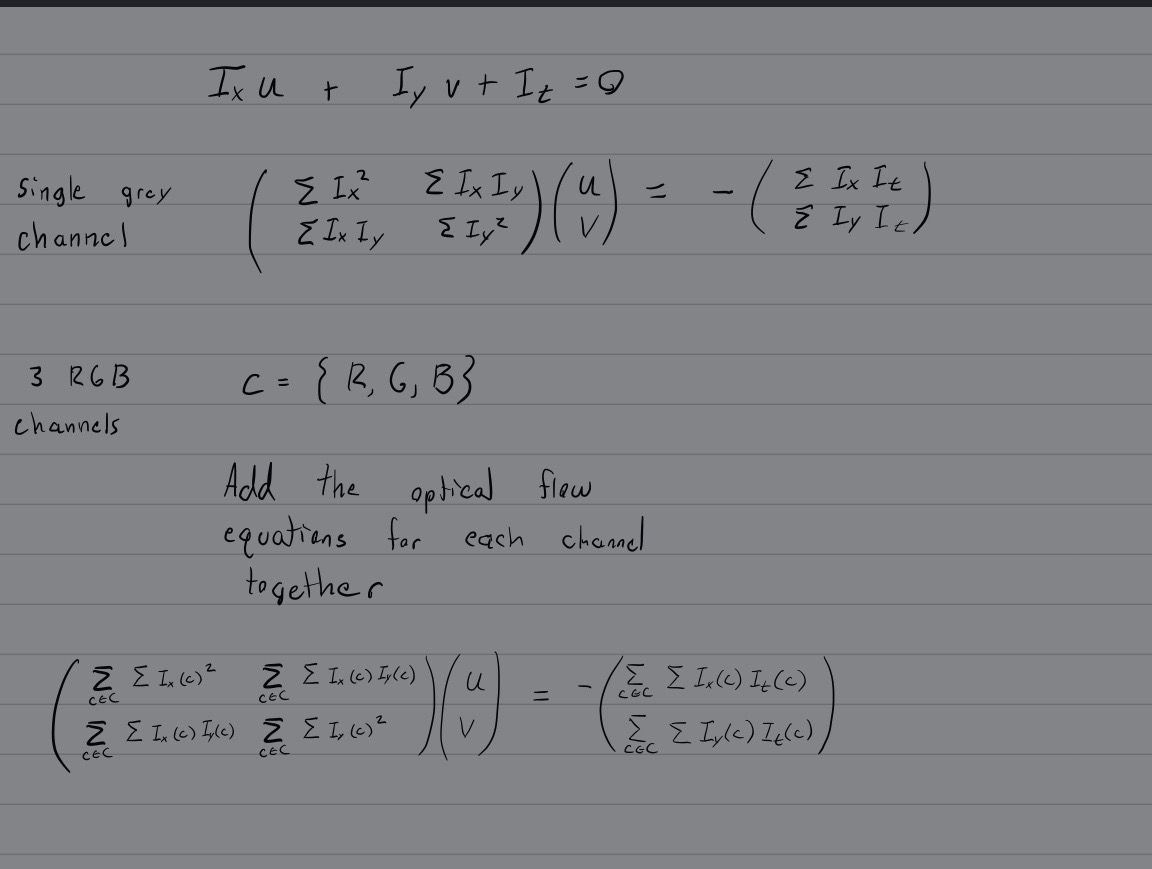 I_x u + I_y v + I_t = 0
Single grey channel
( Σ I_x² Σ I_x I_y ) ( u ) = - ( Σ I_x I_t )
( Σ I_x I_y Σ I_y² ) ( v ) ( Σ I_y I_t )
3 RGB channels
C = { R, G, B }
Add the optical flow
equations for each channel
together
( Σ_{c∈C} Σ I_x(c)² Σ_{c∈C} Σ I_x(c) I_y(c) ) ( u ) = - ( Σ_{c∈C} Σ I_x(c) I_t(c) )
( Σ_{c∈C} Σ I_x(c) I_y(c) Σ_{c∈C} Σ I_y(c)² ) ( v ) ( Σ_{c∈C} Σ I_y(c) I_t(c) )